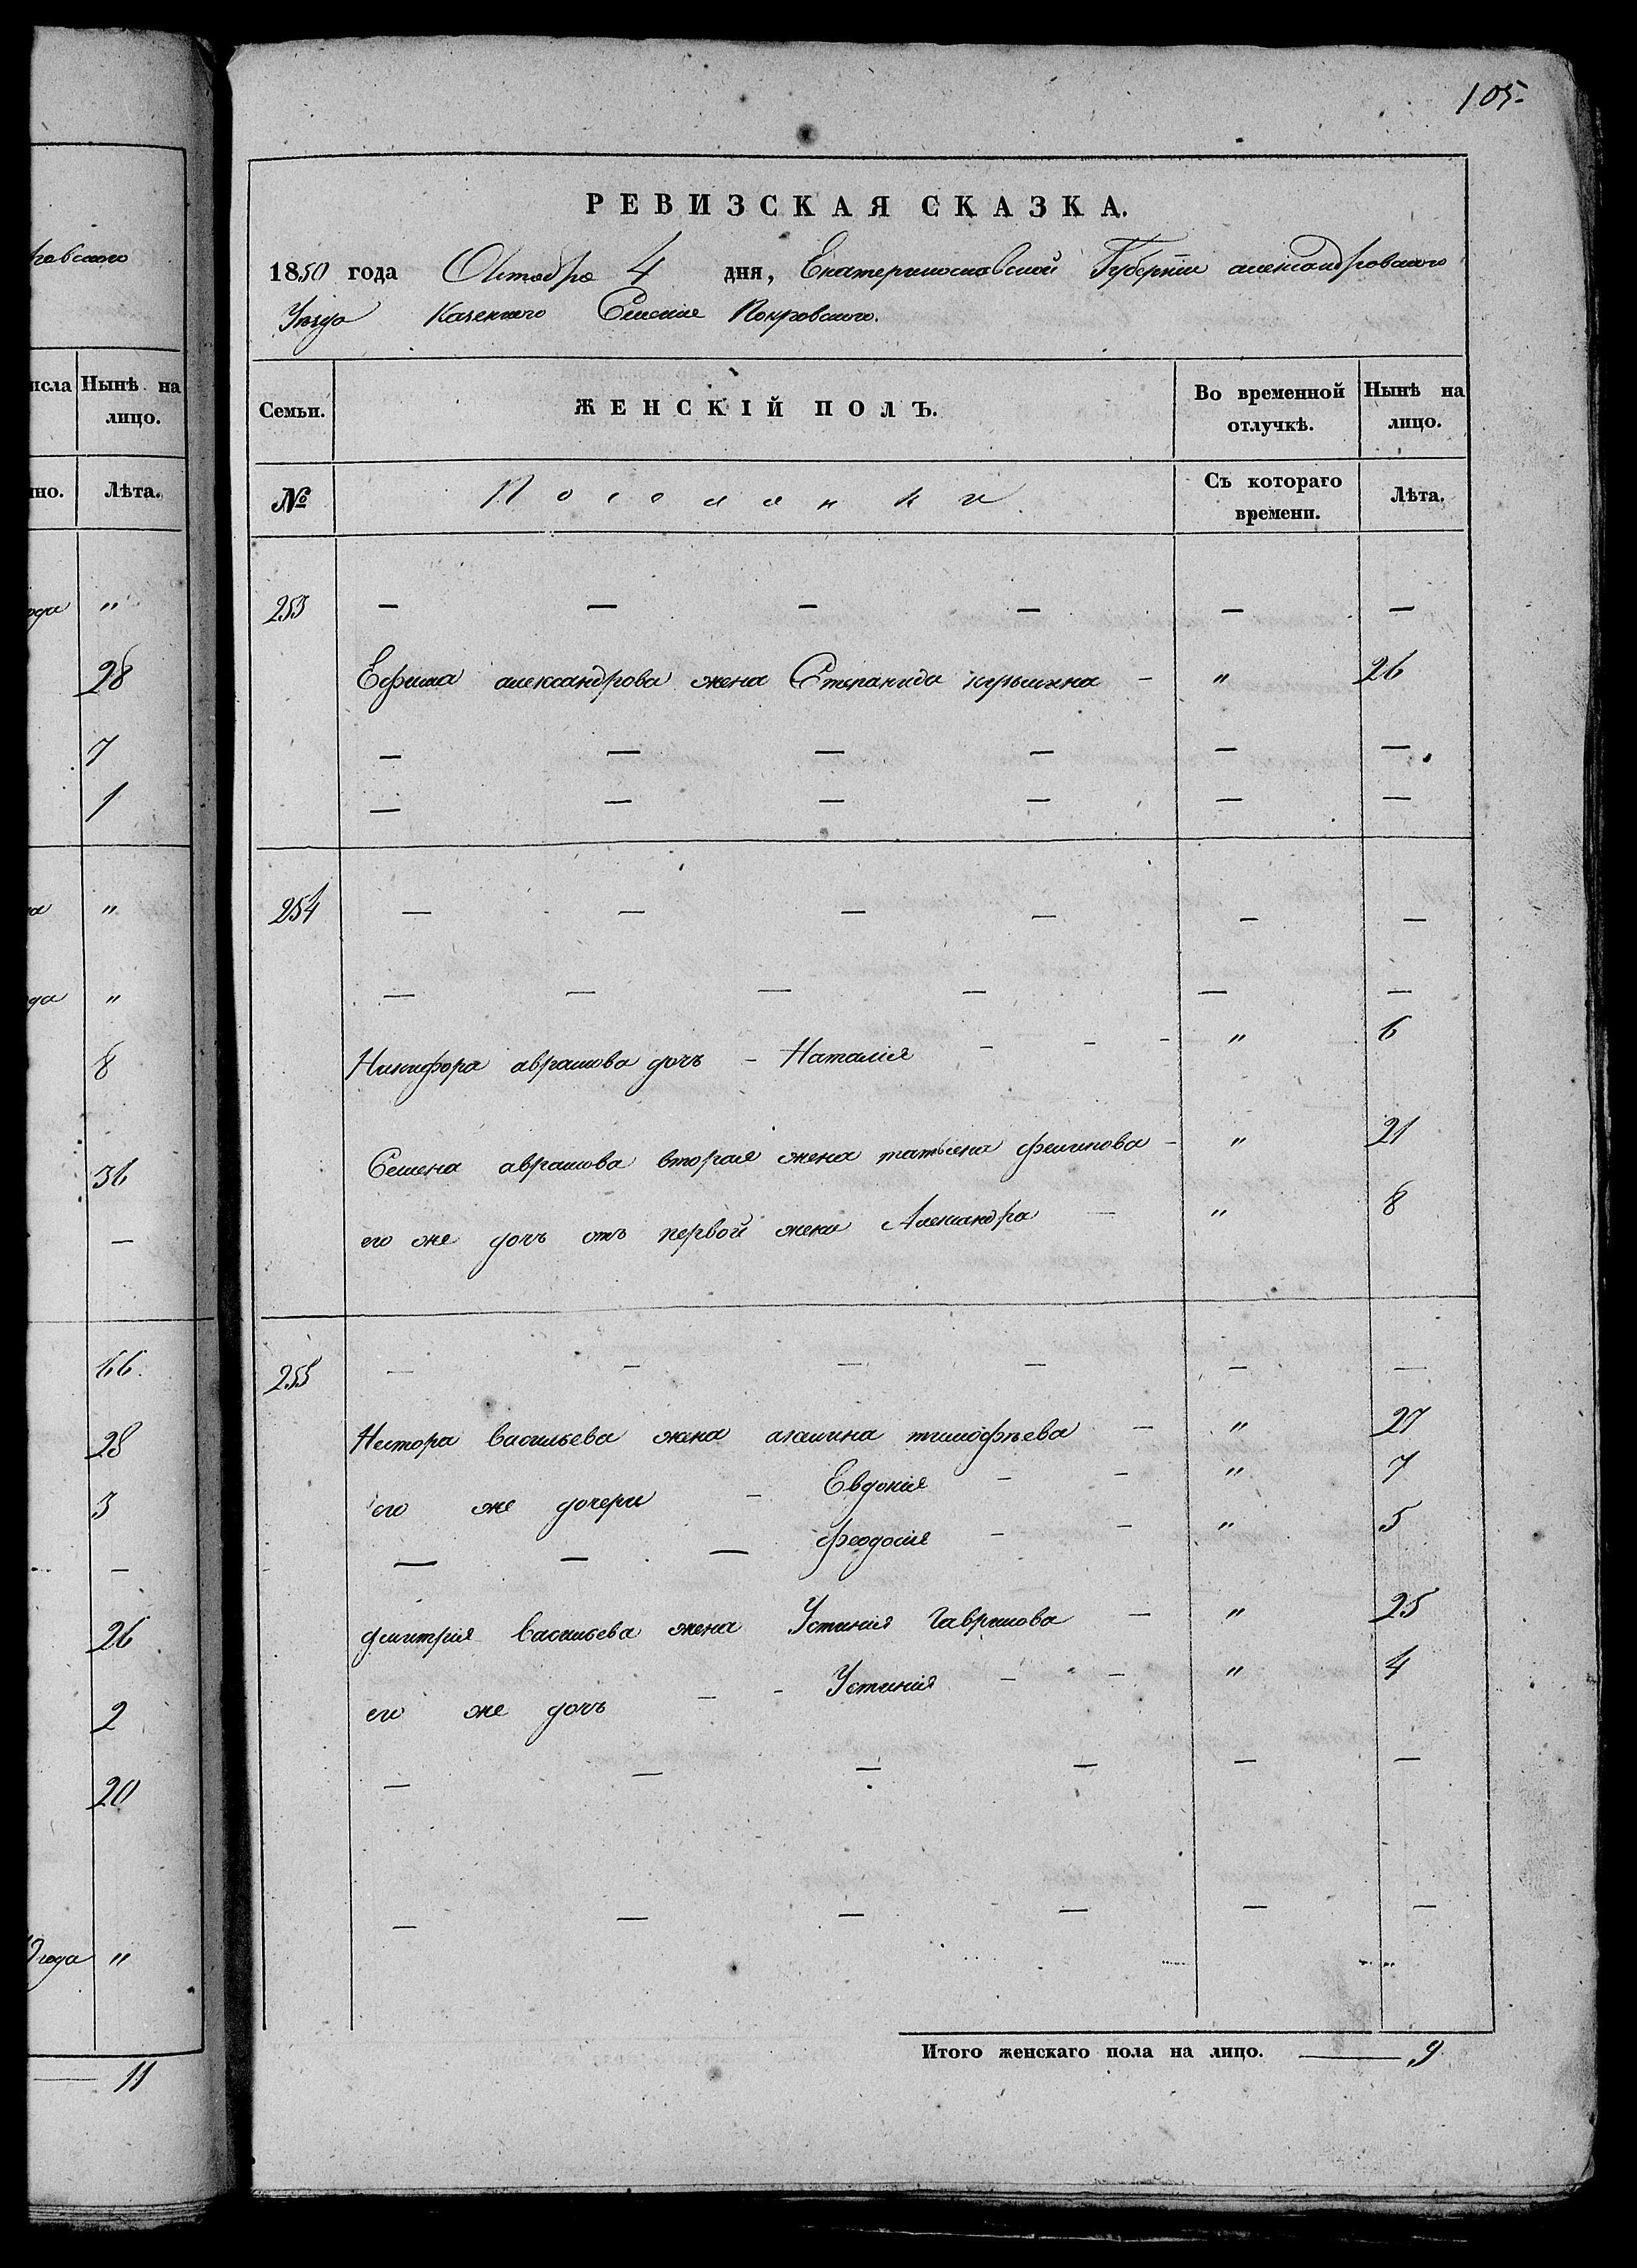 105.
РЕВИЗСКАЯ СКАЗКА.
1850 года Октября 4 дня, Екатеринославской Губернiи александровского
Уезда Казенного Селения Покровского.
Семьи. ЖЕНСКІЙ ПОЛЪ. Во временной отлучкѣ. Нынѣ на лицо.
№ Поселянки. Съ котораго времени. Лѣта.
253 — — — — — —
Ефима александрова жена Степанида — " 26
— — — — — —
— — — — — —
254 — — — — — —
— — — — — —
Никифора авраамова дочь - Наталiя - - - " 6
Семена авраамова вторая жена татьяна филипова - " 21
его же дочь отъ первой жены Александра — " 8
255 — — — — — —
Нестора васильева жена агапия тимофѣева — " 27
его же дочери - Евдокiя - - " 7
— — — феодосiя - - " 5
дмитрия васильева жена Устинiя Гаврилова — " 25
его же дочь - - Устинiя - - " 4
— — — — — —
— — — — — —
Итого женскаго пола на лицо. — 9
ровского
исла Нынѣ на лицо.
но. Лѣта.
года "
28
7
1
а "
да "
8
36
—
66.
28
3
—
26
2
20
года "
— 11